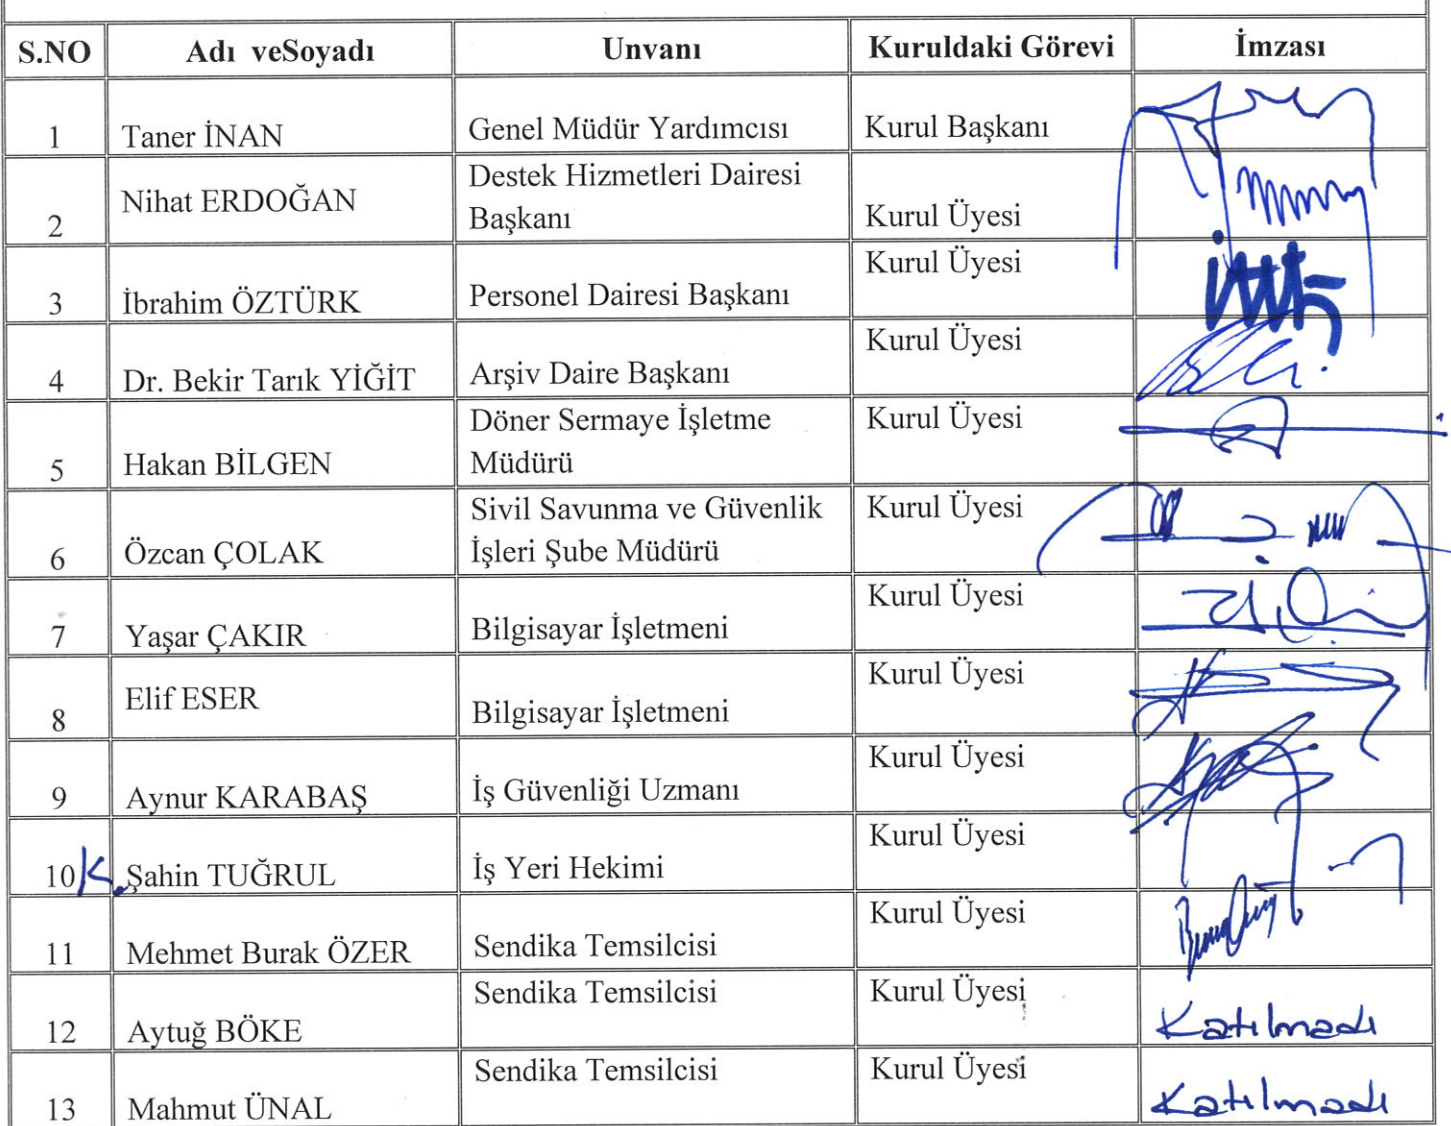 S.NO Adı veSoyadı Unvanı Kuruldaki Görevi İmzası
1 Taner İNAN Genel Müdür Yardımcısı Kurul Başkanı
2 Nihat ERDOĞAN Destek Hizmetleri Dairesi
Başkanı Kurul Üyesi
3 İbrahim ÖZTÜRK Personel Dairesi Başkanı Kurul Üyesi
4 Dr. Bekir Tarık YİĞİT Arşiv Daire Başkanı Kurul Üyesi
5 Hakan BİLGEN Döner Sermaye İşletme
Müdürü Kurul Üyesi
6 Özcan ÇOLAK Sivil Savunma ve Güvenlik
İşleri Şube Müdürü Kurul Üyesi
7 Yaşar ÇAKIR Bilgisayar İşletmeni Kurul Üyesi
8 Elif ESER Bilgisayar İşletmeni Kurul Üyesi
9 Aynur KARABAŞ İş Güvenliği Uzmanı Kurul Üyesi
10 K. Şahin TUĞRUL İş Yeri Hekimi Kurul Üyesi
11 Mehmet Burak ÖZER Sendika Temsilcisi Kurul Üyesi
12 Aytuğ BÖKE Sendika Temsilcisi Kurul Üyesi Katılmadı
13 Mahmut ÜNAL Sendika Temsilcisi Kurul Üyesi Katılmadı